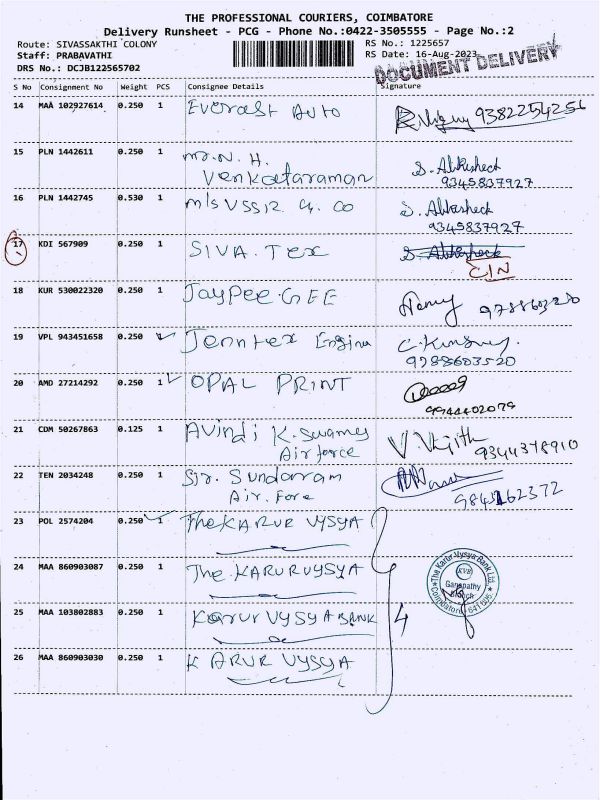 THE PROFESSIONAL COURIERS, COIMBATORE
Delivery Runsheet - PCG - Phone No.:0422-3505555 - Page No.:2
Route: SIVASSAKTHI COLONY
RS No.: 1225657
Staff: PRABAVATHI
RS Date: 16-Aug-2023
DRS No.: DCJB122565702
DOCUMENT DELIVERY
S No Consignment No Weight PCS Consignee Details Signature
14 MAA 102927614 0.250 1 Everest Auto 9382254256
15 PLN 1442611 0.250 1 Mr. N. H.
Venkataraman S. Abisheck
9345837927
16 PLN 1442745 0.530 1 M/s VSSR. G. CO S. Abisheck
9345837927
17 KDI 567909 0.250 1 SIVA. Tex S. Abisheck
C/N
18 KUR 530022320 0.250 1 JayPee GEE
19 VPL 943451658 0.250 1 Jenntex Engine
9788603520
20 AMD 27214292 0.250 1 OPAL PRINT
9944402079
21 CDM 50267863 0.125 1 Avindi K. Swamy V. Vijith
Airforce 9344378910
22 TEN 2034248 0.250 1 Sjr. Sundarram
Air. Fore 9843162372
23 POL 2574204 0.250 1 The KARUR VYSYA
24 MAA 860903087 0.250 1 The KARUR VYSYA
The Karur Vysya Bank Ltd.
KVB
Ganapathy
Branch
Coimbatore - 641 006
25 MAA 103802883 0.250 1 Karur VYSYA BANK 4
26 MAA 860903030 0.250 1 KARUR VYSYA